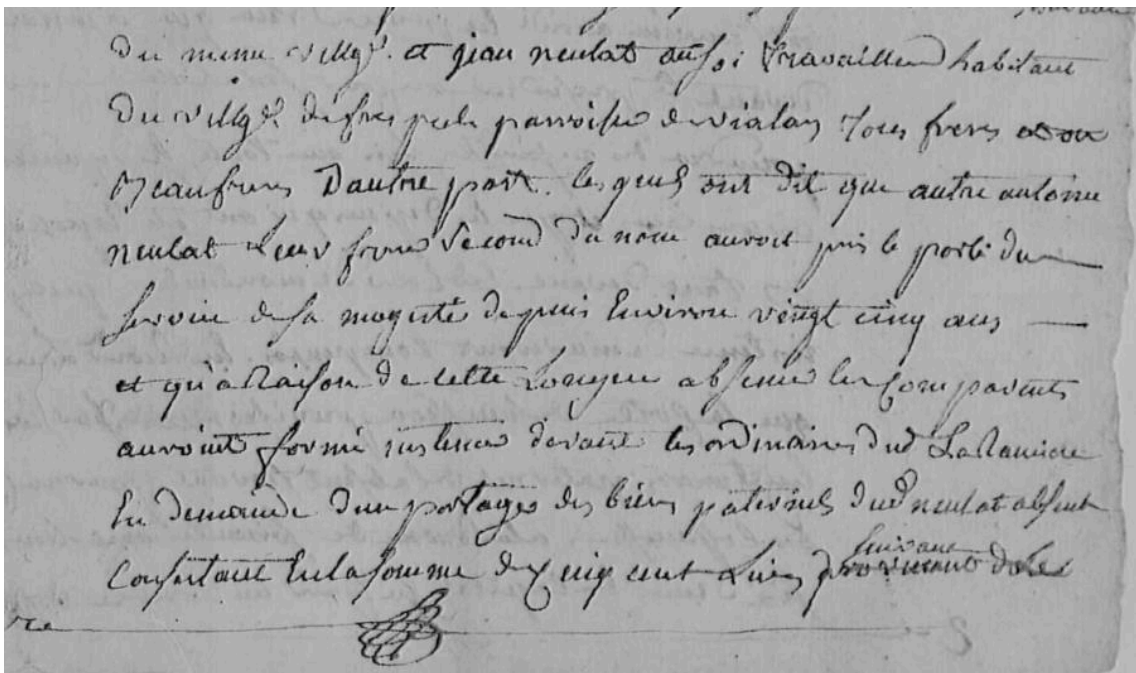 du meme villge. et jean neulat aussi travailleur habitant
du villge. de parroisse de vialas tous freres et ou
beaufreres d'autre part. lesquels ont dit que autre antoine
neulat leur frere second du nom auroit pris le parti du
service de sa majesté depuis environ vingt cinq ans
et qu'a raison de cette longue absence les comparents
auroint formé instance devant les ordinaires dud Laramiere
en demande d'un partage des biens paternels dud neulat absent
consistant en la somme de cinq cent livres suivant
re